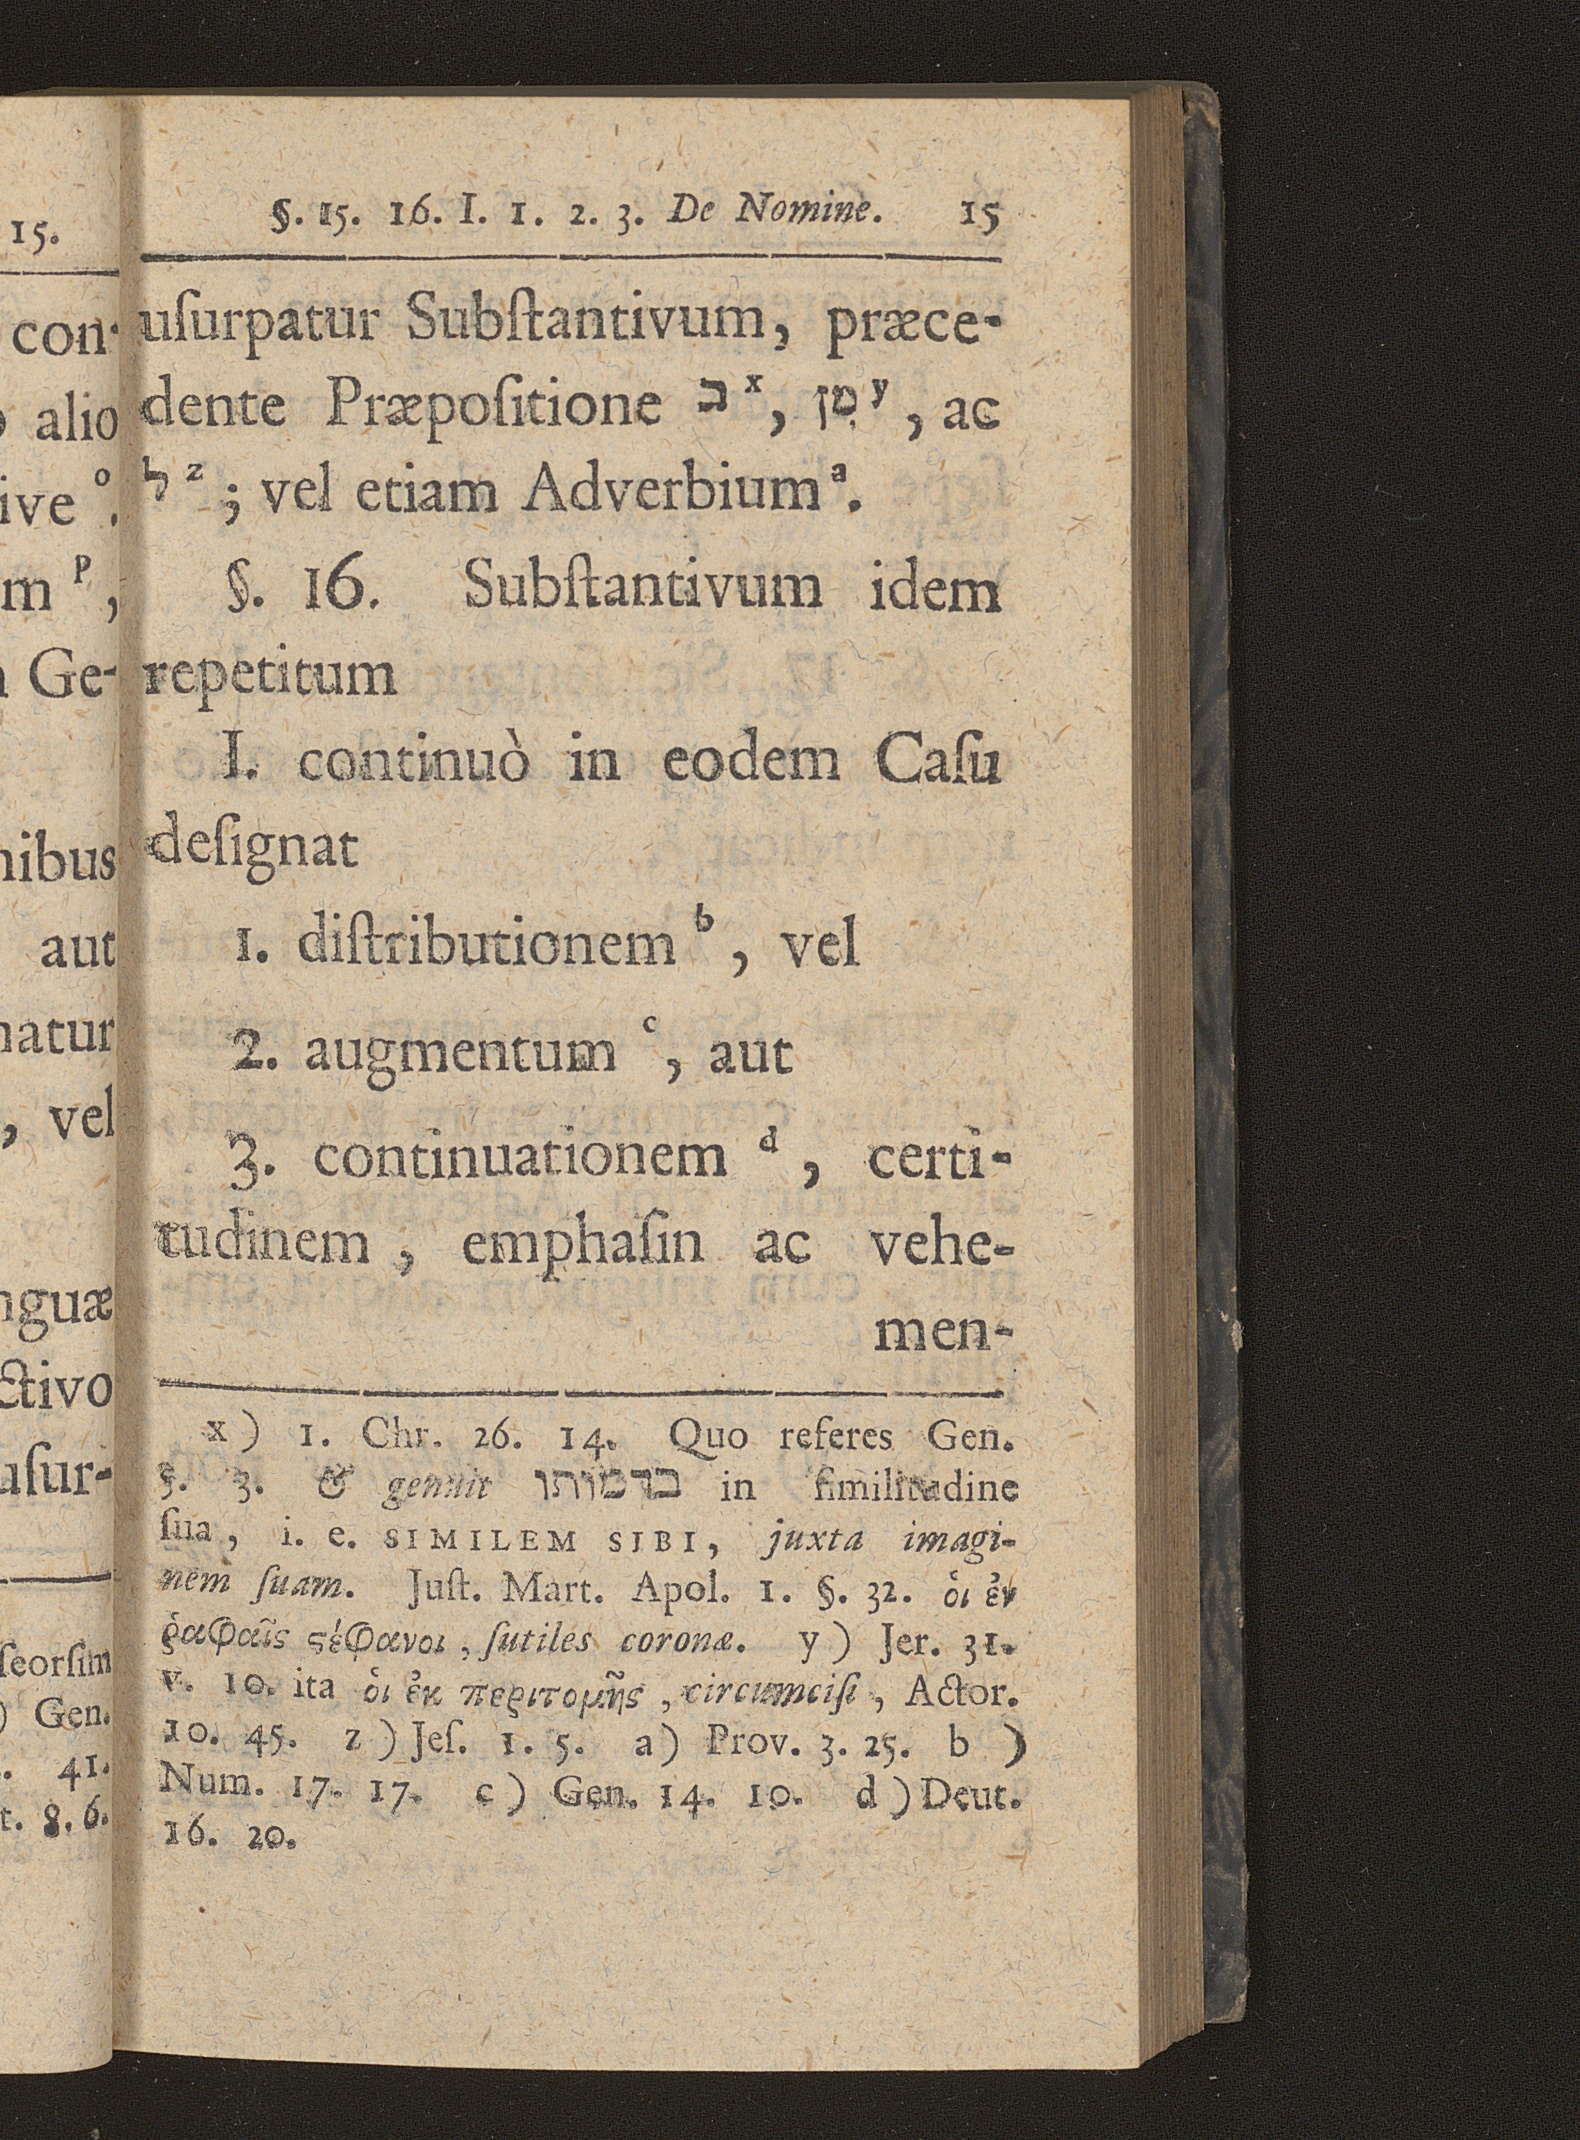 15.
con-
alio
ive o.
m p,
Ge-
nibus
aut
natur
, vel
nguæ
ctivo
uſur-
ſeorſim
) Gen.
. 41.
t. 8. 6.
§. 15. 16. I. 1. 2. 3. De Nomine. 15
uſurpatur Subſtantivum, præce-
dente Præpoſitione ב x, מִן y, ac
ל z; vel etiam Adverbium a.
§. 16. Subſtantivum idem
repetitum
I. continuò in eodem Caſu
deſignat
1. diſtributionem b, vel
2. augmentum c, aut
3. continuationem d, certi-
tudinem, emphaſin ac vehe-
men-
x) 1. Chr. 26. 14. Quo referes Gen.
5. 3. & genuit בדמותו in ſimilitudine
ſua, i. e. SIMILEM SIBI, juxta imagi-
nem ſuam. Juſt. Mart. Apol. 1. §. 32. ὁι ἐν
ῥαφαῖς ϛέφανοι, ſutiles coronæ. y) Jer. 31.
v. 10. ita ὁι ἐκ περιτομῆς, circumciſi, Actor.
10. 45. z) Jeſ. 1. 5. a) Prov. 3. 25. b)
Num. 17. 17. c) Gen. 14. 10. d) Deut.
16. 20.